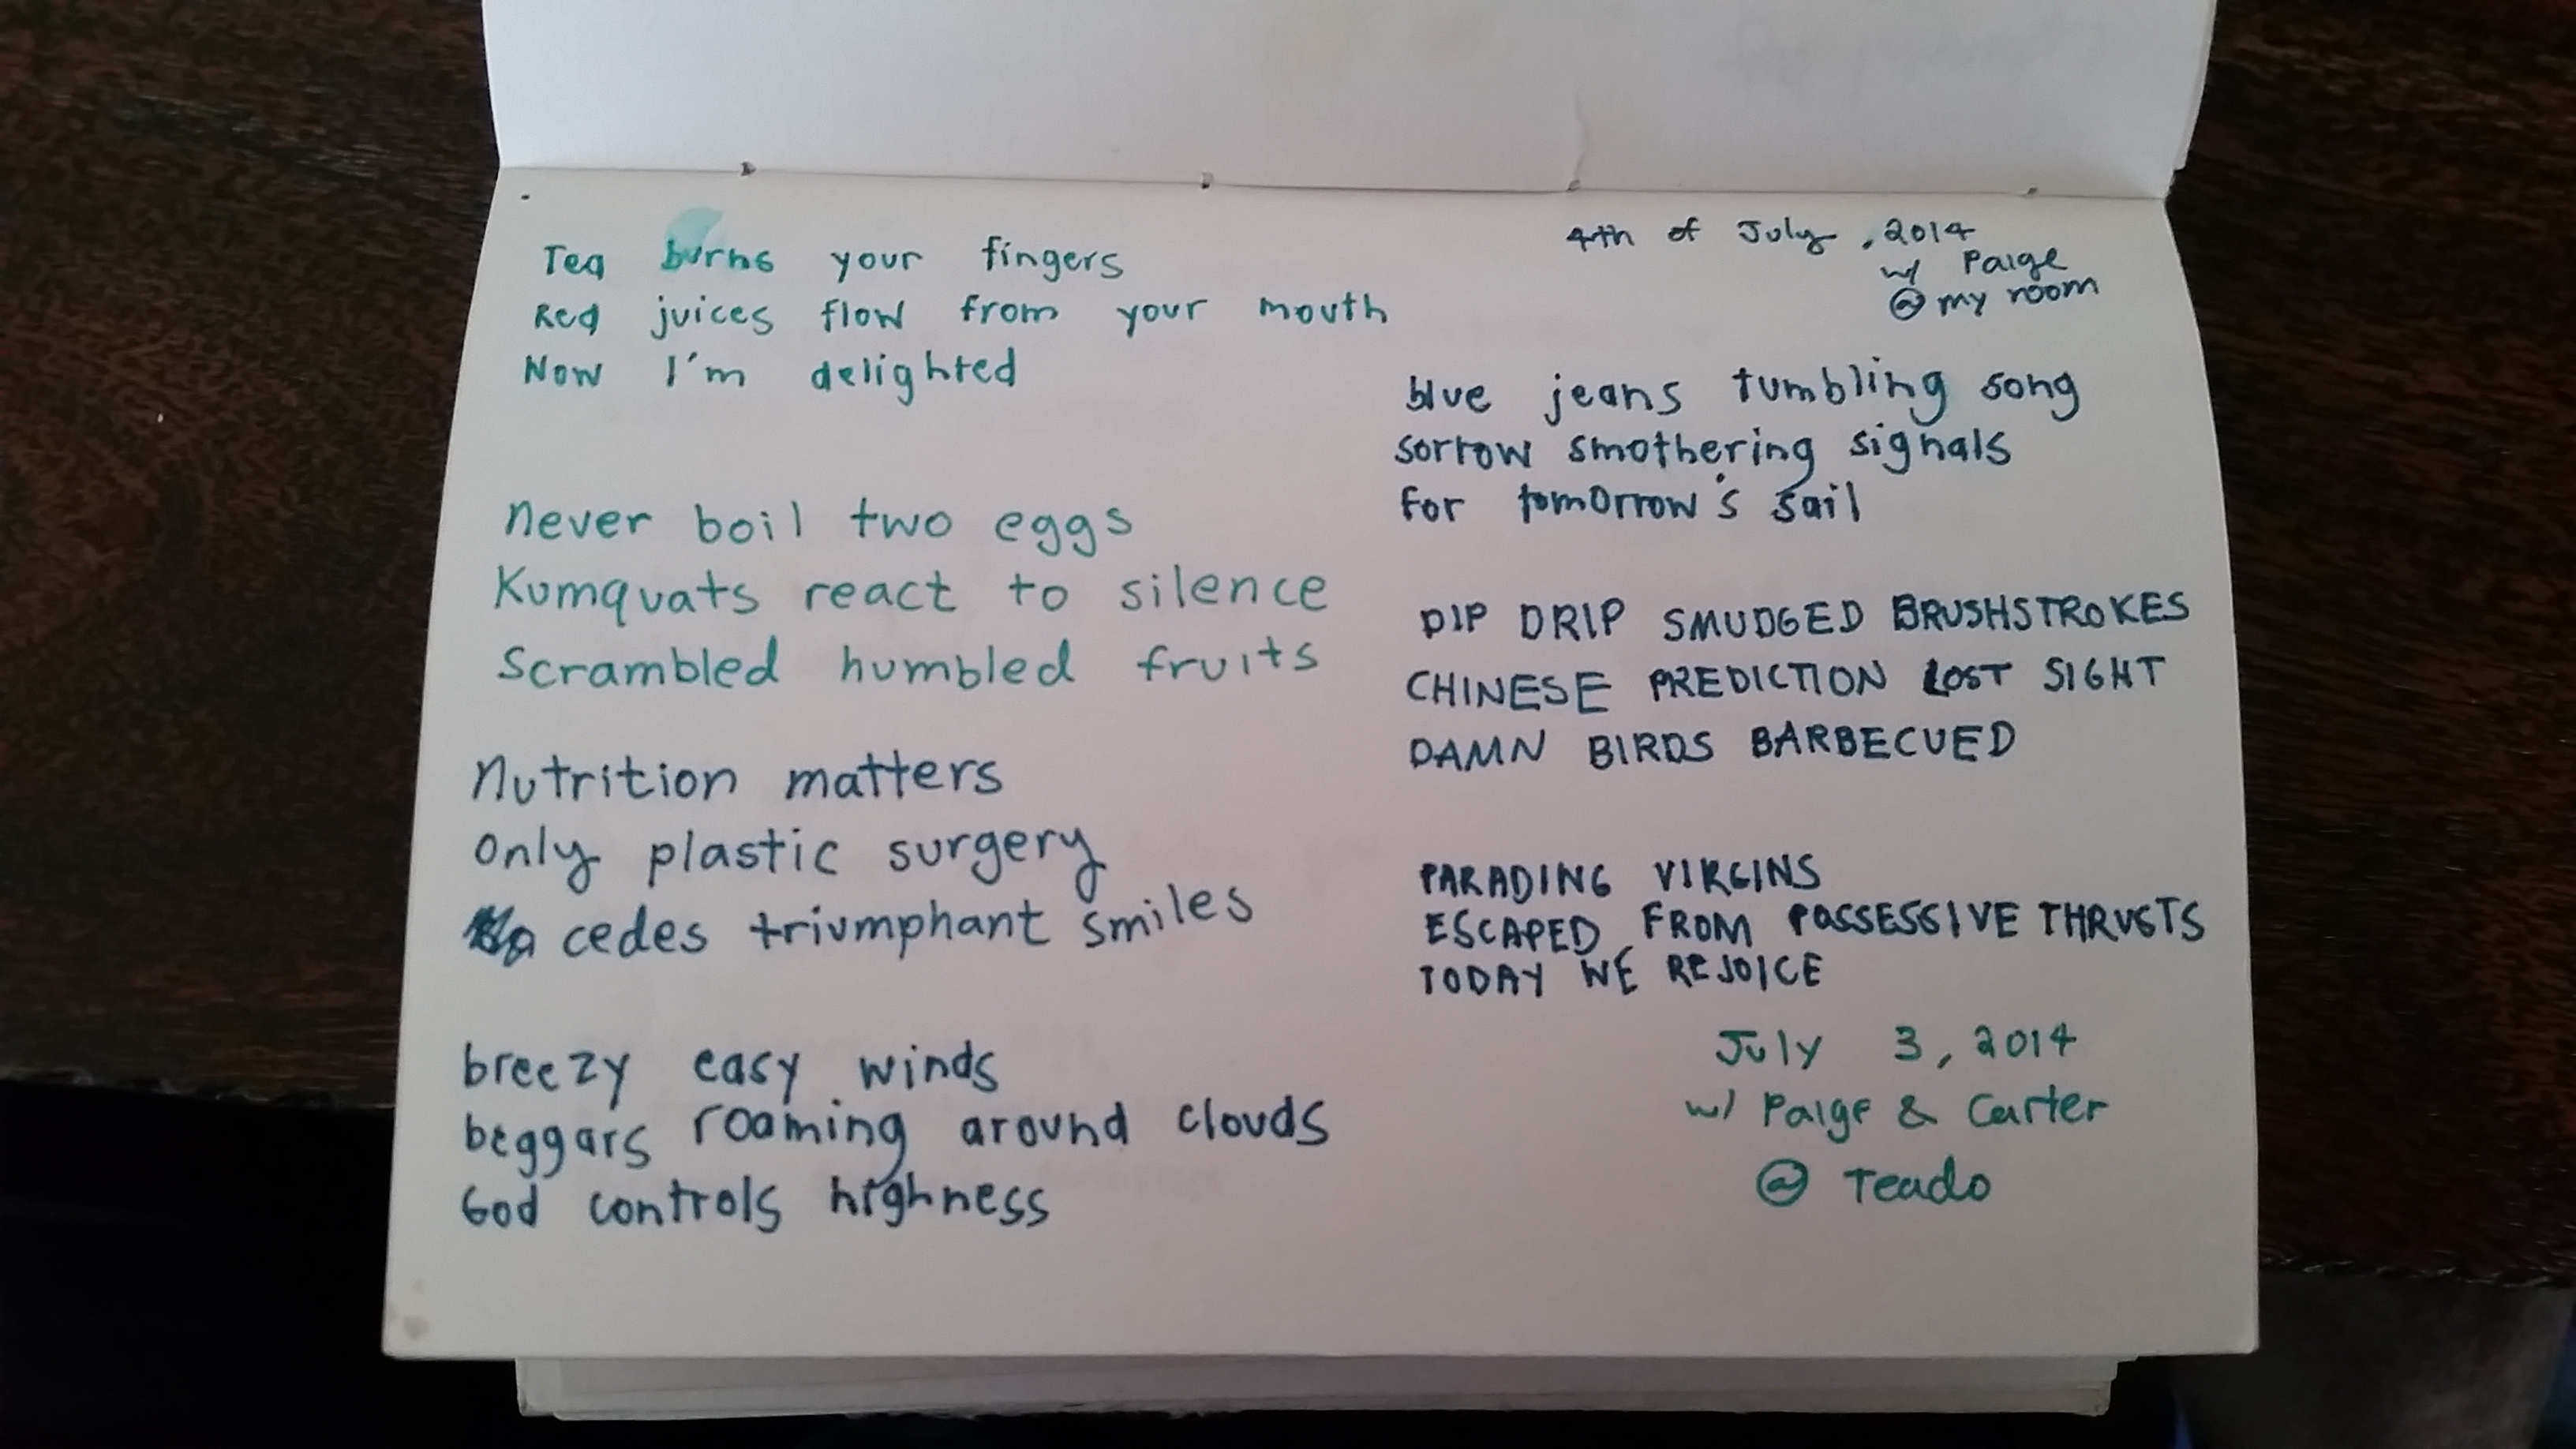 Tea burns your fingers
Red juices flow from your mouth
Now I'm delighted
never boil two eggs
Kumquats react to silence
Scrambled humbled fruits
Nutrition matters
only plastic surgery
cedes triumphant smiles
breezy easy winds
beggars roaming around clouds
God controls highness
4th of July, 2014
w/ Paige
@ my room
blue jeans tumbling song
sorrow smothering signals
for tomorrow's sail
DIP DRIP SMUDGED BRUSHSTROKES
CHINESE PREDICTION LOST SIGHT
DAMN BIRDS BARBECUED
PARADING VIRGINS
ESCAPED FROM POSSESSIVE THRUSTS
TODAY WE REJOICE
July 3, 2014
w/ Paige & Carter
@ Teado